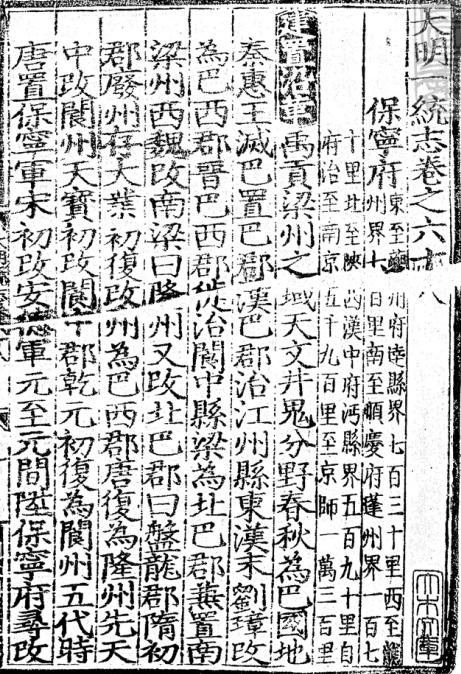 大明一統志卷之六十八
保寧府
東至夔州府達縣界七百三十里西至龍
州界七百里南至順慶府蓬州界一百七
十里北至陜西漢中府沔縣界五百九十里自
府治至南京五千九百里至京師一萬三百里
建置沿革 禹貢梁州之域天文井鬼分野春秋為巴國地
秦惠王滅巴置巴郡漢巴郡治江州縣東漢末劉璋改
為巴西郡晉巴西郡徙治閬中縣梁為北巴郡兼置南
梁州西魏改南梁曰隆州又改北巴郡曰盤龍郡隋初
郡廢州存大業初復改州為巴西郡唐復為隆州先天
中改閬州天寶初改閬中郡乾元初復為閬州五代時
唐置保寧軍宋初改安德軍元至元間陞保寧府尋改